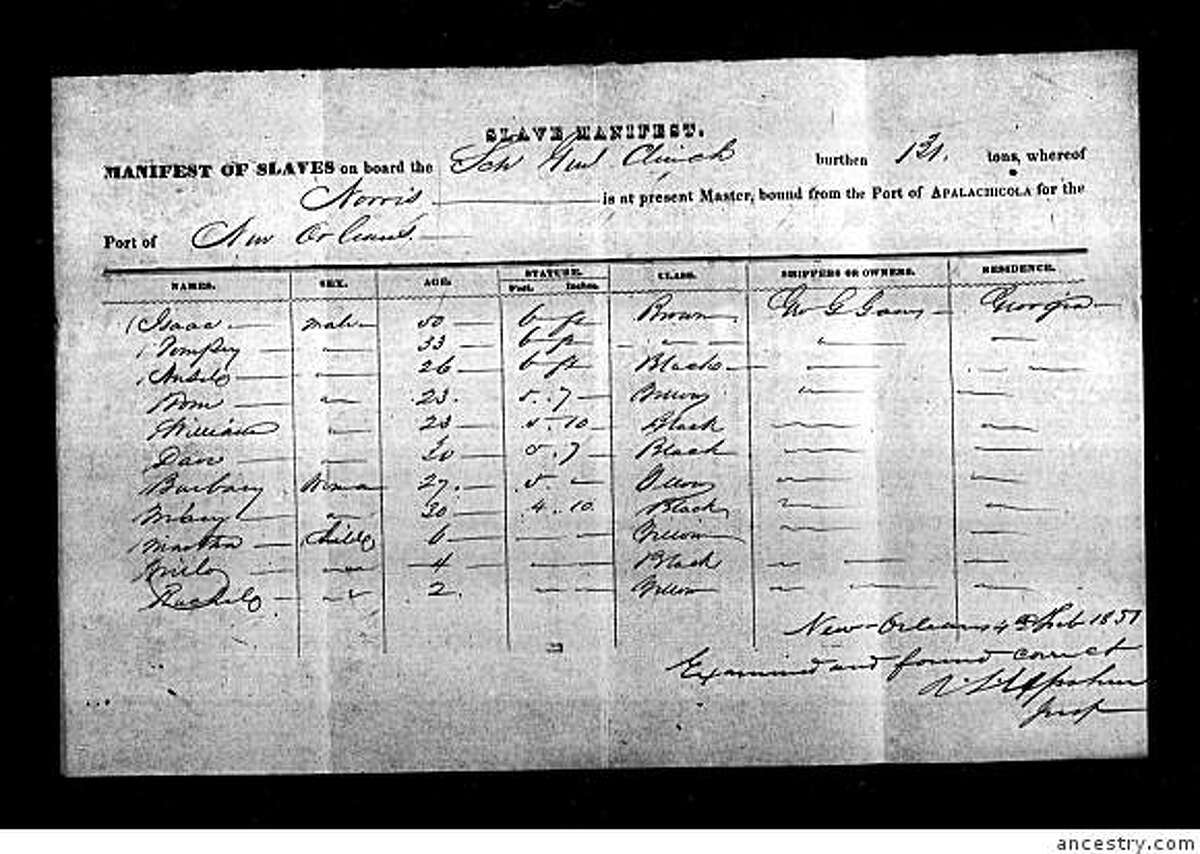 SLAVE MANIFEST.
MANIFEST OF SLAVES on board the Sch Genl Clinch burthen 131. tons, whereof
Norris is at present Master, bound from the Port of APALACHICOLA for the
Port of New Orleans.
NAMES. SEX. AGE. STATURE. CLASS. SHIPPERS OR OWNERS. RESIDENCE.
Feet. Inches.
Isaac male 50 6 ft Brown Geo G Georgia
Pompey — 33 6 ft — — —
26 6 ft Black — —
23. 5.7 — —
William — 23 5.10 Black — —
Dave — 30 5.7 Black — —
Barbary Woman 27. 5. — — —
Mary — 30 4.10 Black — —
Martha Child 6 — — —
— 4 — Black — —
Rachel — 2. — — —
New Orleans 4th Feb 1851
Examined and found correct
Insp